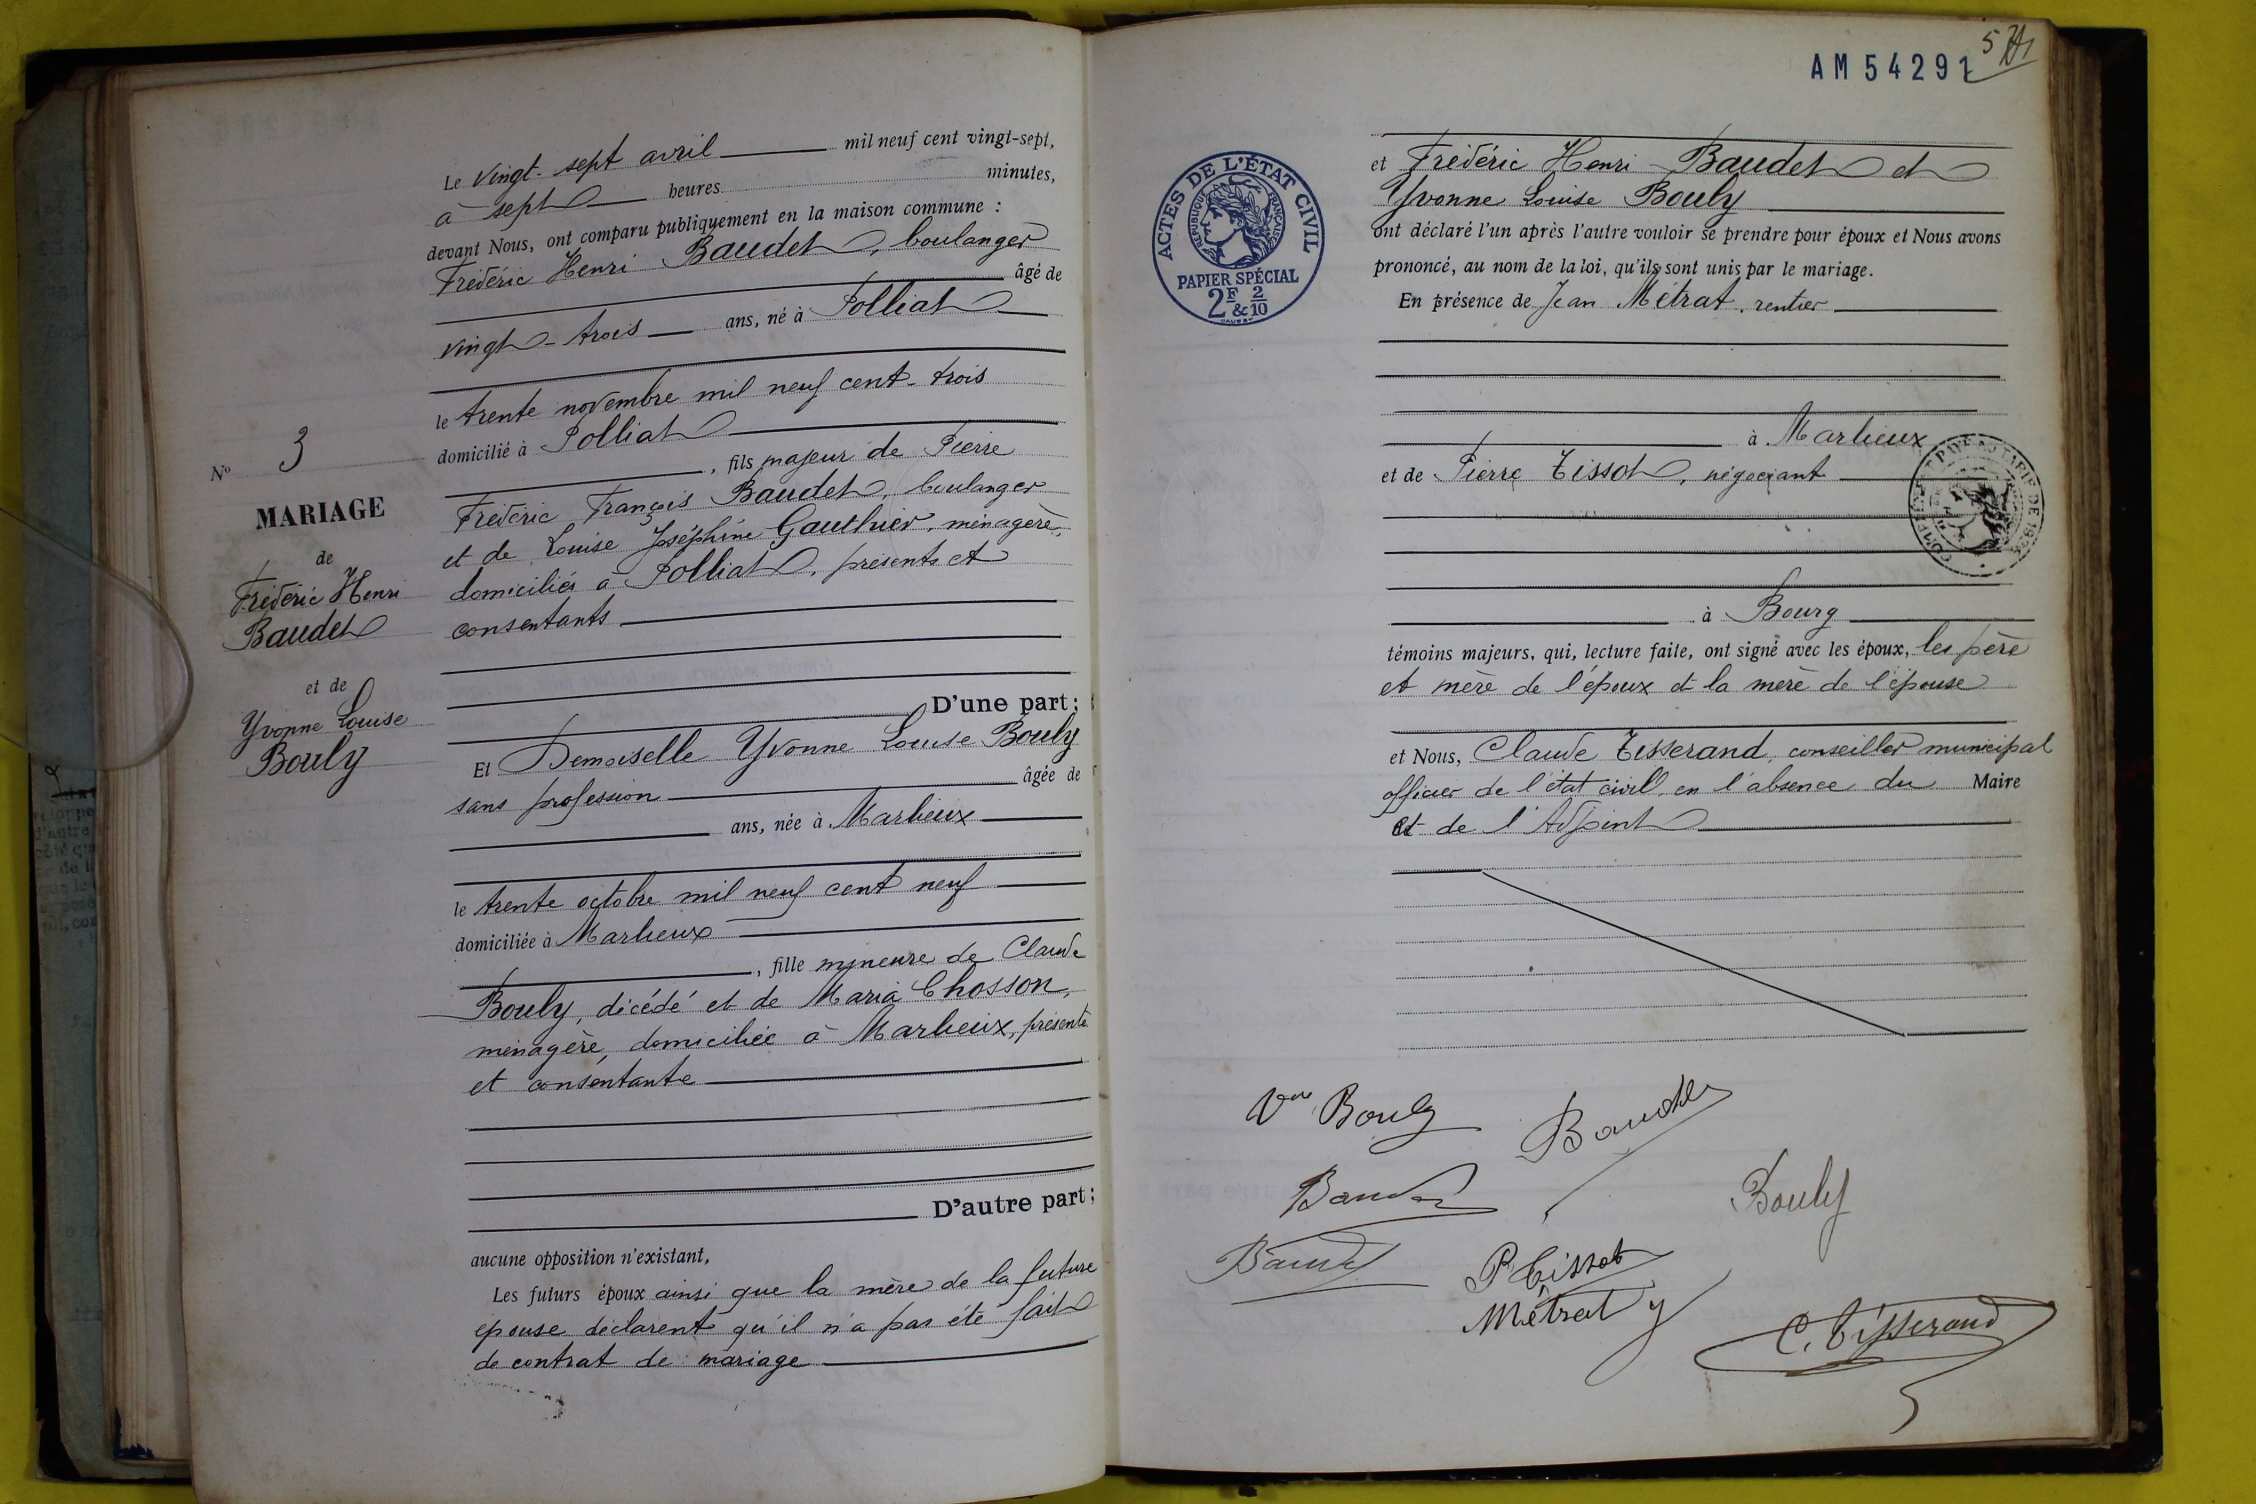 Nº 3
MARIAGE
de
Frédéric Henri
Baudet
et de
Yvonne Louise
Bouly
Le vingt-sept avril mil neuf cent vingt-sept,
à sept heures minutes,
devant Nous, ont comparu publiquement en la maison commune :
Frédéric Henri Baudet, boulanger
âgé de
vingt-trois ans, né à Polliat
le trente novembre mil neuf cent-trois
domicilié à Polliat
, fils majeur de Pierre
Frédéric François Baudet, boulanger
et de Louise Joséphine Gauthier, ménagère,
domiciliés à Polliat, présents et
consentants
D'une part ;
Et Demoiselle Yvonne Louise Bouly
sans profession âgée de
ans, née à Marlieux
le trente octobre mil neuf cent neuf
domiciliée à Marlieux
, fille mineure de Claude
Bouly, décédé et de Maria Chosson,
ménagère, domiciliée à Marlieux, présente
et consentante
D'autre part ;
aucune opposition n'existant,
Les futurs époux ainsi que la mère de la future
épouse déclarent qu'il n'a pas été fait
de contrat de mariage
AM 54291
5
ACTES DE L'ÉTAT CIVIL
RÉPUBLIQUE FRANÇAISE
PAPIER SPÉCIAL
2F & 2/10
et Frédéric Henri Baudet et
Yvonne Louise Bouly
ont déclaré l'un après l'autre vouloir se prendre pour époux et Nous avons
prononcé, au nom de la loi, qu'ils sont unis par le mariage.
En présence de Jean Métrat, rentier
à Marlieux
et de Pierre Tissot, négociant
à Bourg
témoins majeurs, qui, lecture faite, ont signé avec les époux, les père
et mère de l'époux et la mère de l'épouse
et Nous, Claude Tisserand, conseiller municipal
officier de l'état civil en l'absence du Maire
et de l'Adjoint
Vve Bouly
Baudet
Baudet
Bouly
Baudet
P Tissot
Métrat
C. Tisserand